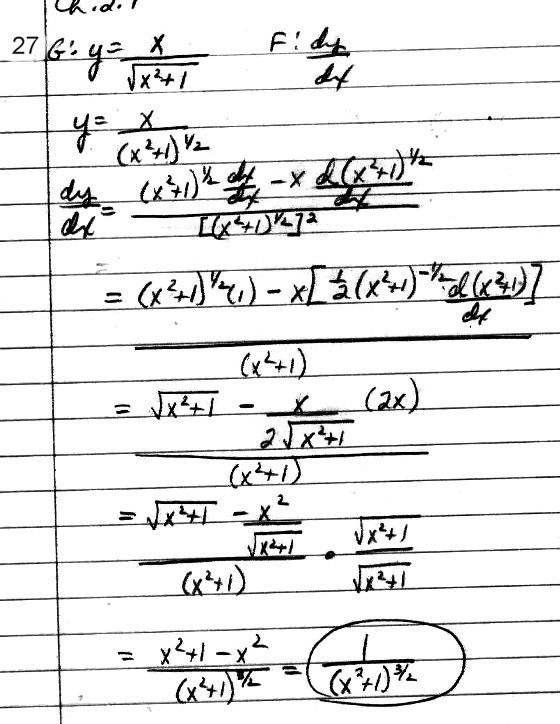 Ch. 2.
27 G: y = x / √(x²+1) F: dy/dx
y = x / (x²+1)^(1/2)
dy/dx = ((x²+1)^(1/2) dx/dx − x d(x²+1)^(1/2)/dx) / [(x²+1)^(1/2)]²
= ((x²+1)^(1/2) (1) − x[1/2 (x²+1)^(−1/2) d(x²+1)/dx]) / (x²+1)
= (√(x²+1) − x / (2√(x²+1)) (2x)) / (x²+1)
= (√(x²+1) − x² / √(x²+1)) / (x²+1) • √(x²+1) / √(x²+1)
= (x²+1−x²) / (x²+1)^(3/2) = 1 / (x²+1)^(3/2)